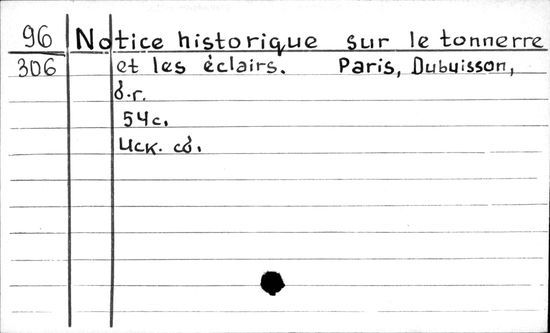 96 Notice historique sur le tonnerre
306 et les éclairs. Paris, Dubuisson,
б.г.
54с.
Иск. сб.